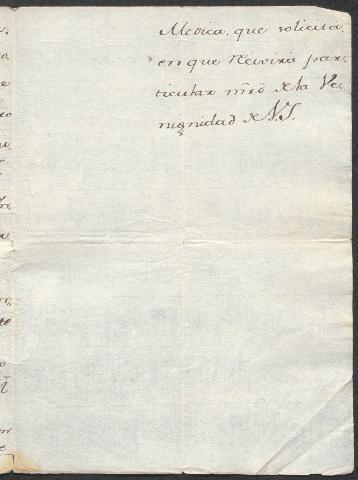 Medica, que solicita,
en que Recivirá par-
ticular mrd de la Ve-
nignidad de V.S.